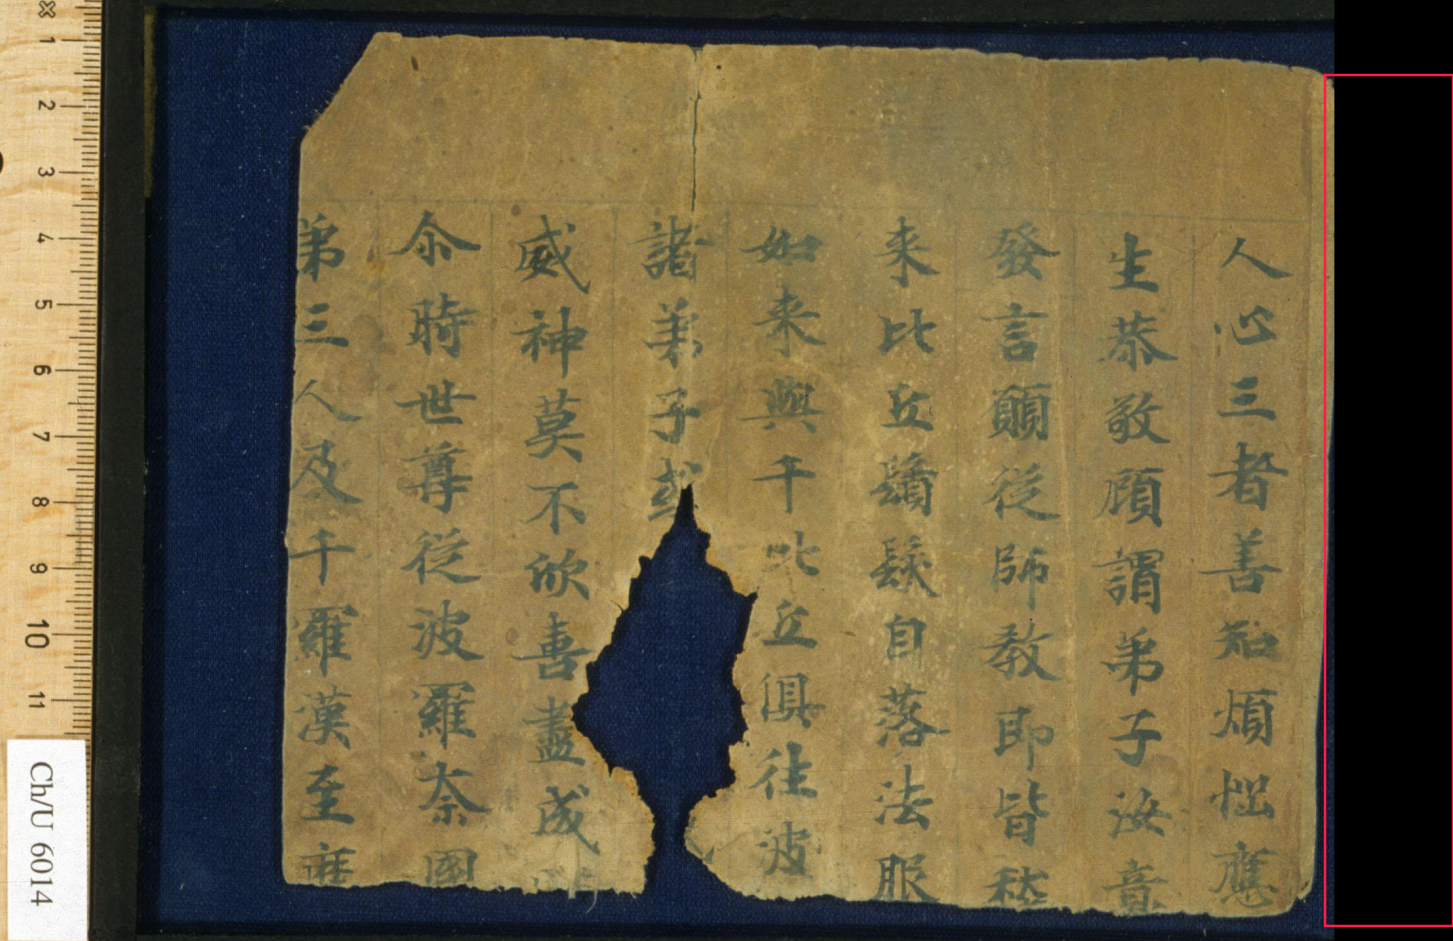 人心三者善知煩惱應
生恭敬顧謂弟子汝意
發言願從師教即皆稽
来比丘鬚髮自落法服
如来與千比丘俱往波
諸弟子或
威神莫不欣喜盡成
尒時世尊從波羅奈國
第三人及千羅漢至摩
Ch/U 6014
1 2 3 4 5 6 7 8 9 10 11